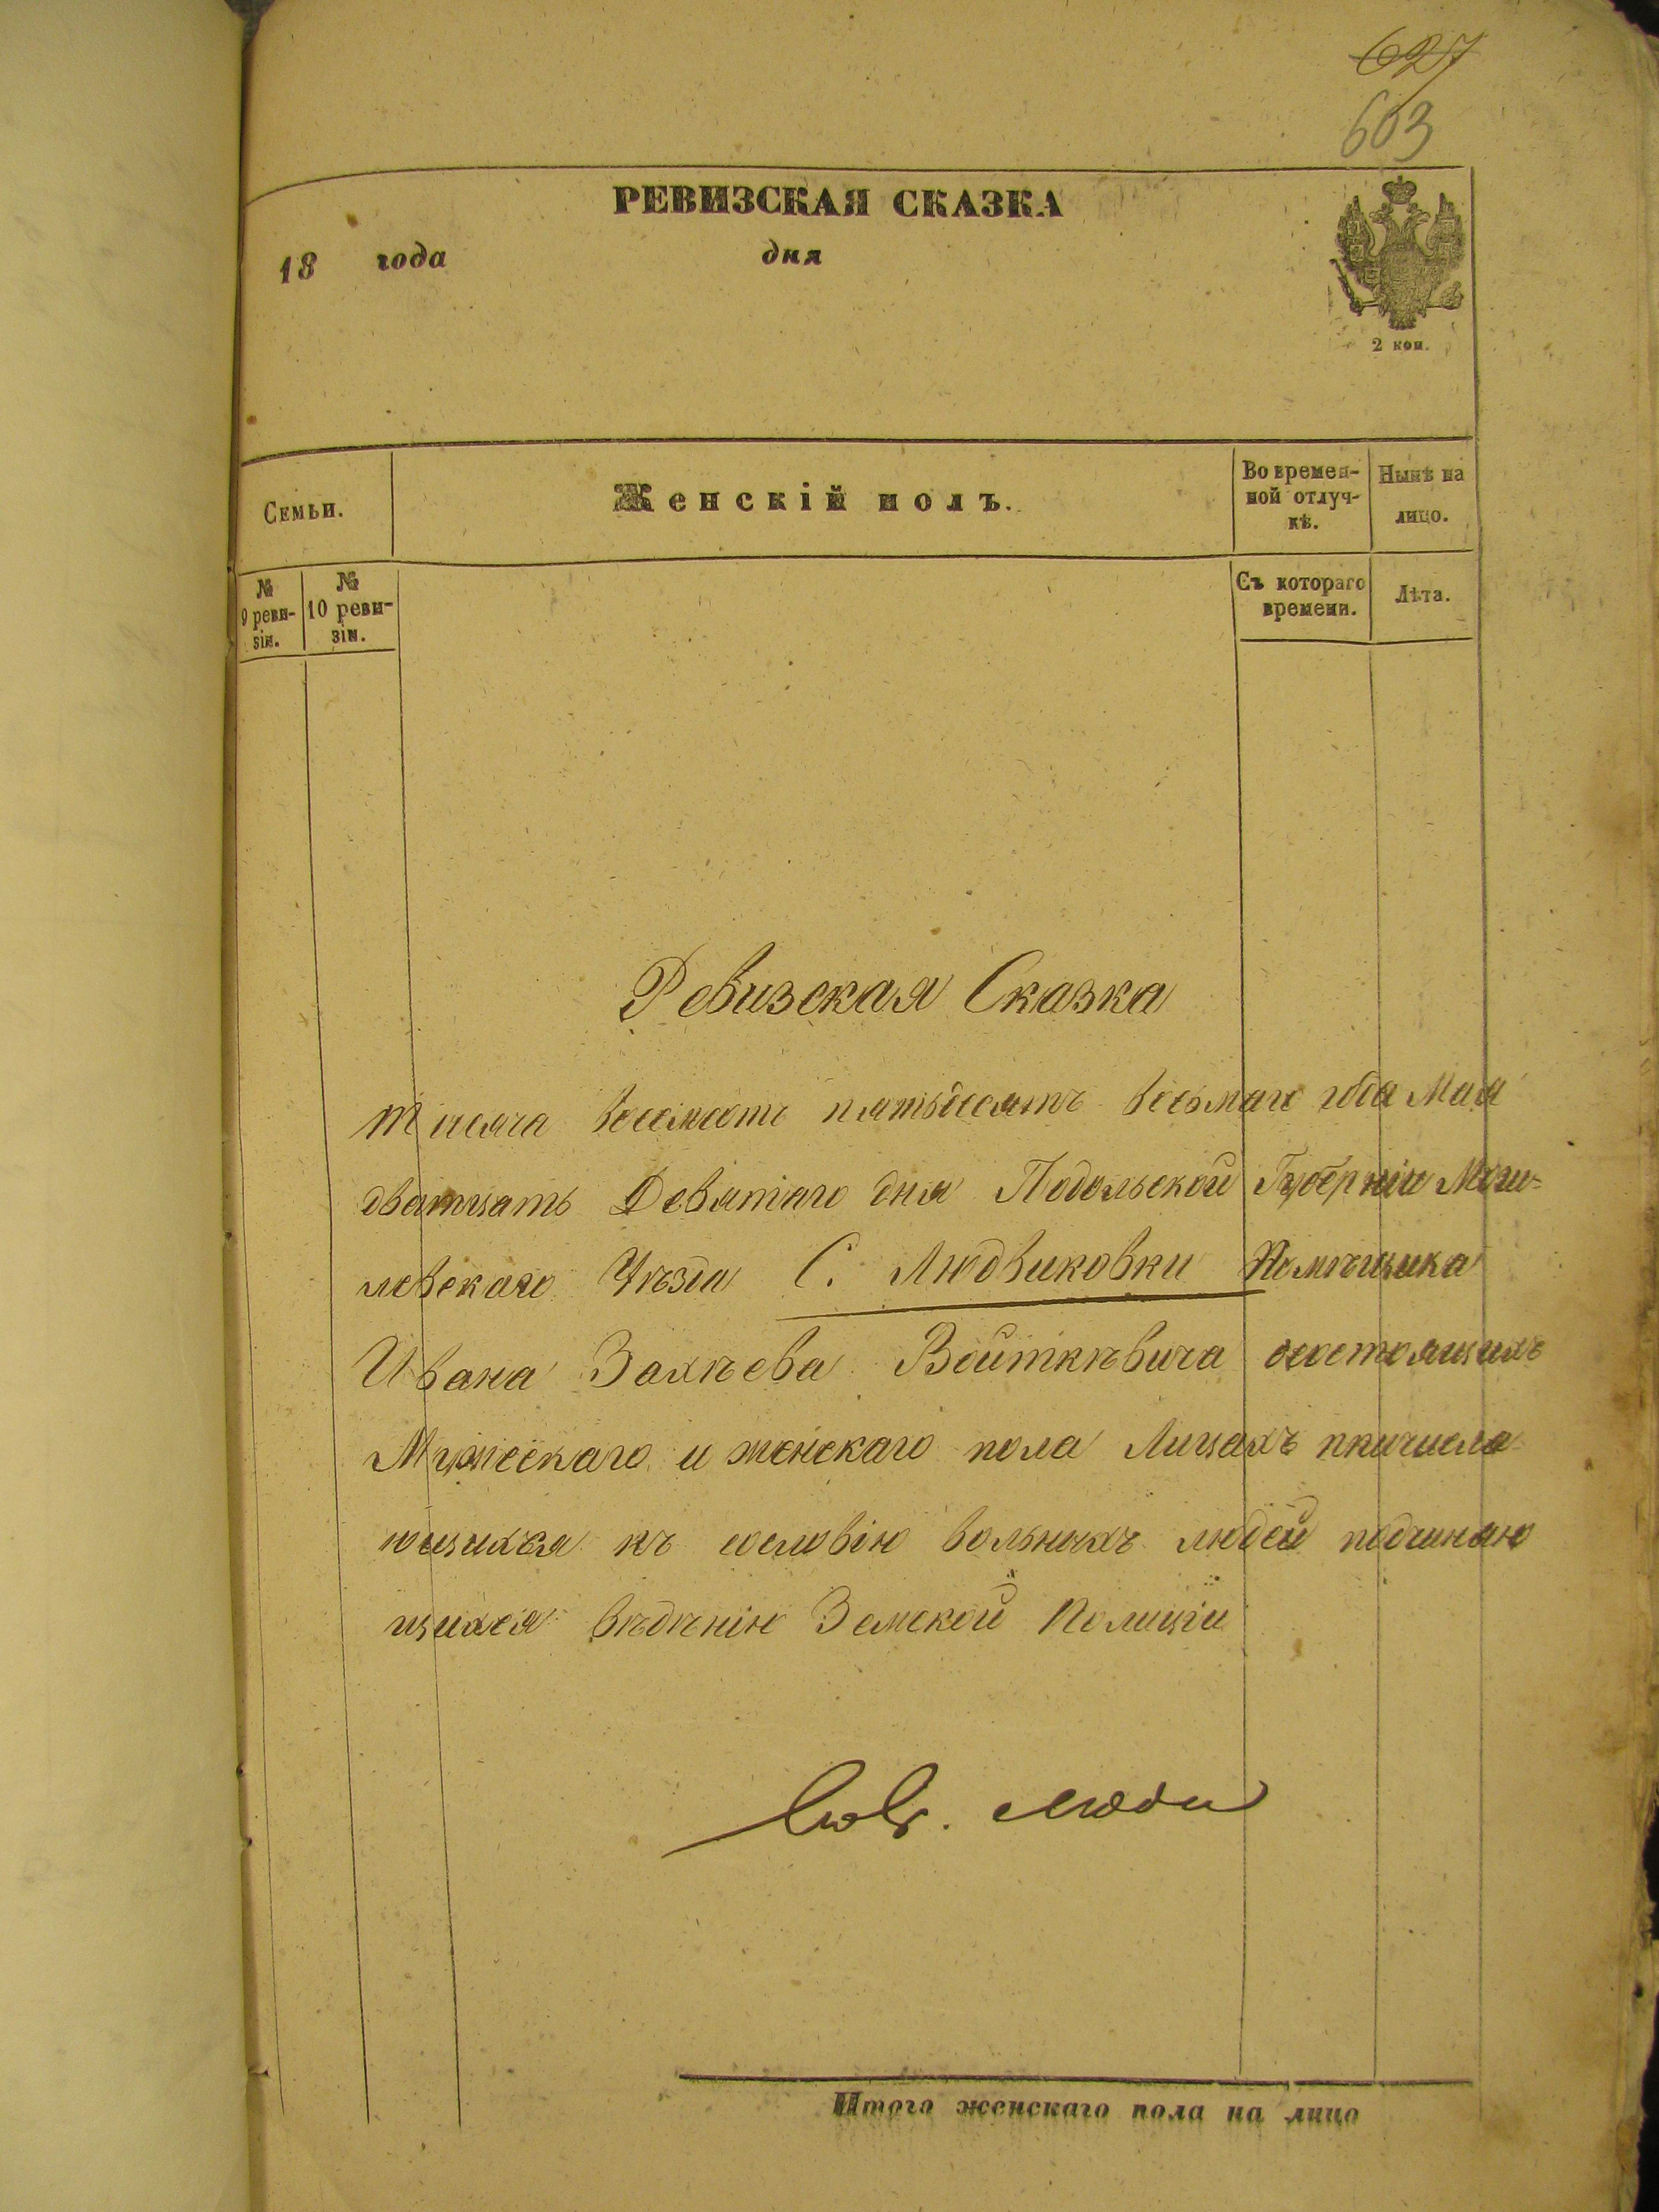 627
603
РЕВИЗСКАЯ СКАЗКА
18 года дня
2 коп.
Семьи.
Женскій полъ.
Во времен-
ной отлуч-
кѣ.
Нынѣ на
лицо.
№
9 реви-
зіи.
№
10 реви-
зіи.
Съ котораго
времени.
Лѣта.
Ревизская Сказка
тисяча восемсотъ пятьдесятъ восьмаго года Мая
дватцать Девятаго дня Подольской Губерніи Моги-
левскаго Уѣзда С. Людвиковки Помѣщика
Ивана Войткѣвича осостоящихъ
Мужескаго и женскаго пола Лицахъ
ющихся къ сословію вольныхъ людей подчиняю
щихся вѣдѣнію Земской Полиціи
люди
Итого женскаго пола на лицо